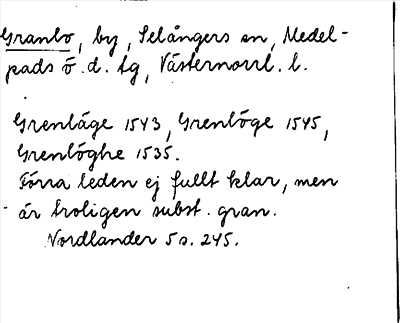 Granbo, by, Selångers sn, Medel-
pads ö. d. tg, Västernorrl. l.
Grenbäge 1543, Grenböge 1545,
Grenböghe 1535.
Förra leden ej fullt klar, men
är troligen subst. gran.
Nordlander 5 s. 245.